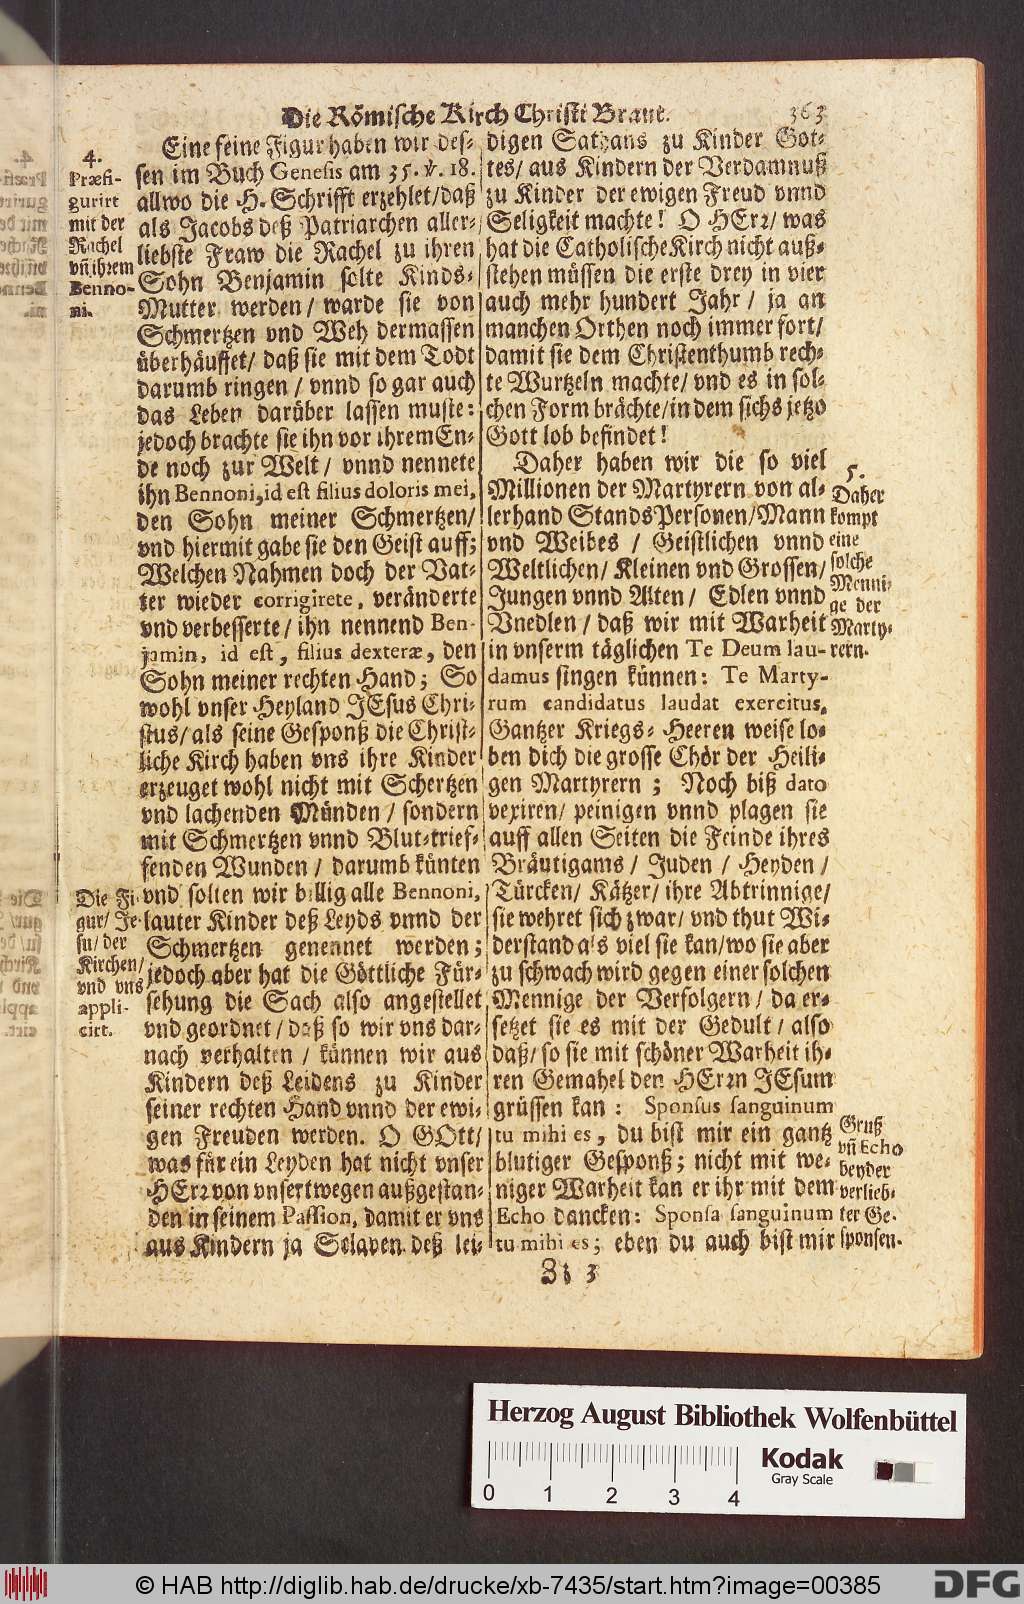 Die Römische Kirch Christi Braut. 363
4.
Præfi-
gurirt
mit der
Rachel
vn̄ ihrem
Benno-
ni.
Eine feine Figur haben wir des-
sen im Buch Genesis am 35. ℣. 18.
allwo die H. Schrifft erzehlet/ daß
als Jacobs deß Patriarchen aller-
liebste Fraw die Rachel zu ihren
Sohn Benjamin solte Kinds-
Mutter werden/ warde sie von
Schmertzen vnd Weh dermassen
überhäuffet/ daß sie mit dem Todt
darumb ringen/ vnnd so gar auch
das Leben darüber lassen muste:
jedoch brachte sie ihn vor ihrem En-
de noch zur Welt/ vnnd nennete
ihn Bennoni, id est filius doloris mei,
den Sohn meiner Schmertzen/
vnd hiermit gabe sie den Geist auff;
Welchen Nahmen doch der Vat-
ter wieder corrigirete, veränderte
vnd verbesserte/ ihn nennend Ben-
jamin, id est, filius dexteræ, den
Sohn meiner rechten Hand; So
wohl vnser Heyland JEsus Chri-
stus/ als seine Gesponß die Christ-
liche Kirch haben vns ihre Kinder
erzeuget wohl nicht mit Schertzen
vnd lachenden Münden/ sondern
mit Schmertzen vnnd Blut-trief-
fenden Wunden/ darumb künten
vnd solten wir billig alle Bennoni,
lauter Kinder deß Leyds vnnd der
Schmertzen genennet werden;
jedoch aber hat die Göttliche Für-
sehung die Sach also angestellet
vnd geordnet/ daß so wir vns dar-
nach verhalten/ künnen wir aus
Kindern deß Leidens zu Kinder
seiner rechten Hand vnnd der ewi-
gen Freuden werden. O GOtt/
was für ein Leyden hat nicht vnser
HErr von vnsertwegen außgestan-
den in seinem Passion, damit er vns
aus Kindern ja Sclaven deß lei-
Die Fi-
gur/ Je-
su/ der
Kirchen/
vnd vns
appli-
cirt.
digen Sathans zu Kinder Got-
tes/ aus Kindern der Verdamnuß
zu Kinder der ewigen Freud vnnd
Seligkeit machte! O HErr/ was
hat die Catholische Kirch nicht auß-
stehen müssen die erste drey in vier
auch mehr hundert Jahr/ ja an
manchen Orthen noch immer fort/
damit sie dem Christenthumb rech-
te Wurtzeln machte/ vnd es in sol-
chen Form brächte/ in dem sichs jetzo
Gott lob befindet!
Daher haben wir die so viel
Millionen der Martyrern von al-
lerhand Stands Personen/ Mann
vnd Weibes/ Geistlichen vnnd
Weltlichen/ Kleinen vnd Grossen/
Jungen vnnd Alten/ Edlen vnnd
Vnedlen/ daß wir mit Warheit
in vnserm täglichen Te Deum lau-
damus singen künnen: Te Marty-
rum candidatus laudat exercitus,
Gantzer Kriegs-Heeren weise lo-
ben dich die grosse Chör der Heili-
gen Martyrern; Noch biß dato
vexiren/ peinigen vnnd plagen sie
auff allen Seiten die Feinde ihres
Bräutigams/ Juden/ Heyden/
Türcken/ Kätzer/ ihre Abtrinnige/
sie wehret sich zwar/ vnd thut Wi-
derstand als viel sie kan/ wo sie aber
zu schwach wird gegen einer solchen
Mennige der Verfolgern/ da er-
setzet sie es mit der Gedult/ also
daß/ so sie mit schöner Warheit ih-
ren Gemahel den HErrn JEsum
grüssen kan: Sponsus sanguinum
tu mihi es, du bist mir ein gantz
blutiger Gesponß; nicht mit we-
niger Warheit kan er ihr mit dem
Echo dancken: Sponsa sanguinum
tu mihi es; eben du auch bist mir
5.
Daher
kompt
eine
solche
Menni-
ge der
Marty-
rern.
Gruß
vn̄ Echo
beyder
verlieb-
ter Ge-
sponsen.
Zz 3
Herzog August Bibliothek Wolfenbüttel
Kodak
Gray Scale
0 1 2 3 4
© HAB http://diglib.hab.de/drucke/xb-7435/start.htm?image=00385
DFG